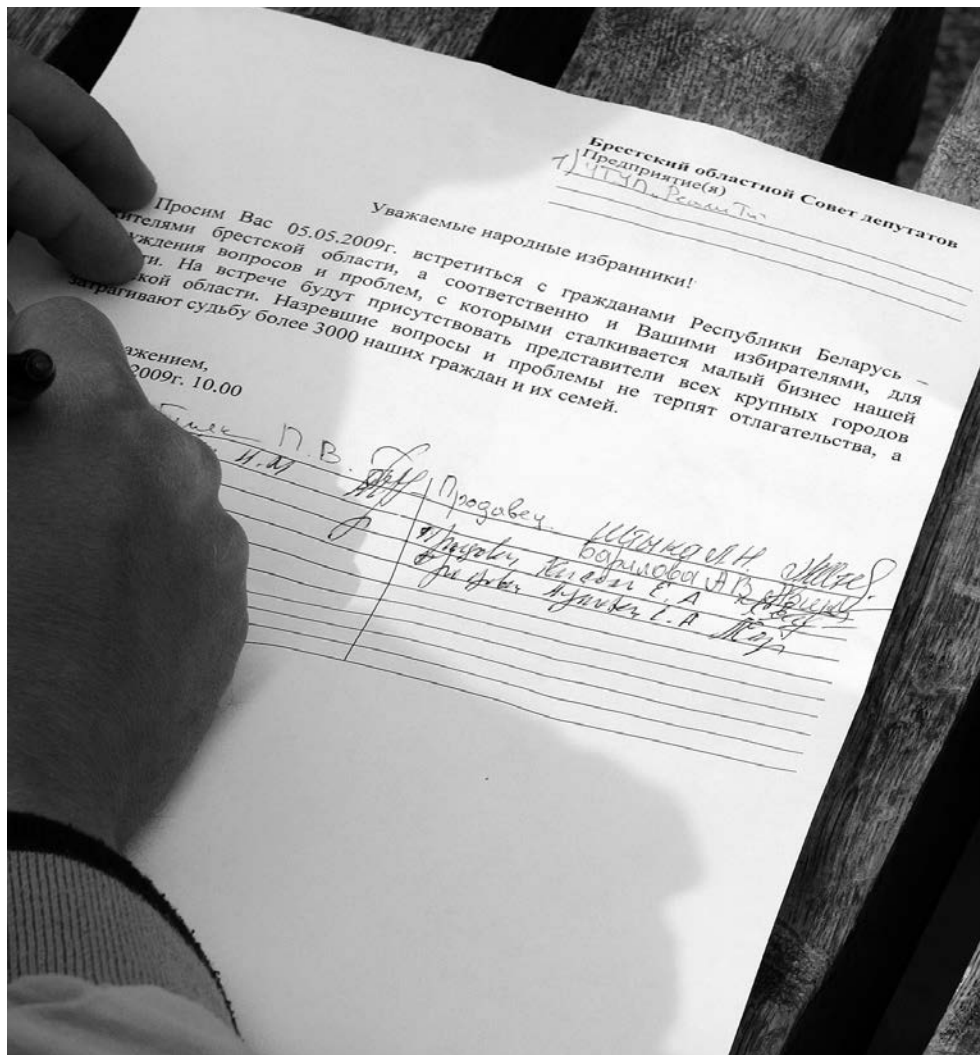 Брестский областной Совет депутатов
Предприятие(я)
1) ЧТУП
Уважаемые народные избранники!
Просим Вас 05.05.2009г. встретиться с гражданами Республики Беларусь –
жителями брестской области, а соответственно и Вашими избирателями, для
уждения вопросов и проблем, с которыми сталкивается малый бизнес нашей
ти. На встрече будут присутствовать представители всех крупных городов
ской области. Назревшие вопросы и проблемы не терпят отлагательства, а
затрагивают судьбу более 3000 наших граждан и их семей.
ажением,
2009г. 10.00
П. В.
Н.М
Продавец Л.Н.
А В
Е. А
А